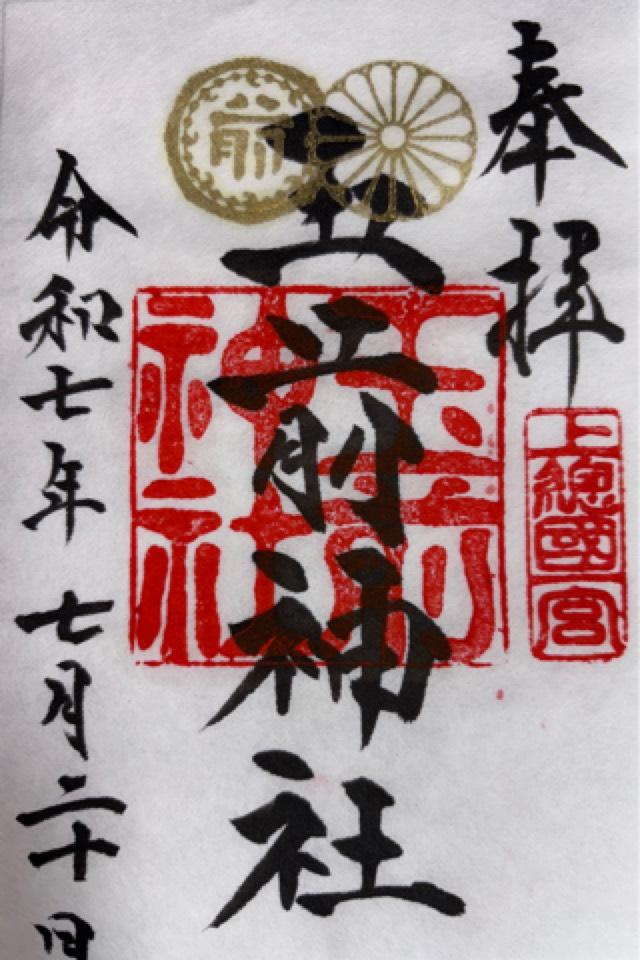 奉拝
上總國一宮
前
玉前神社
玉前神社
令和七年 七月二十日